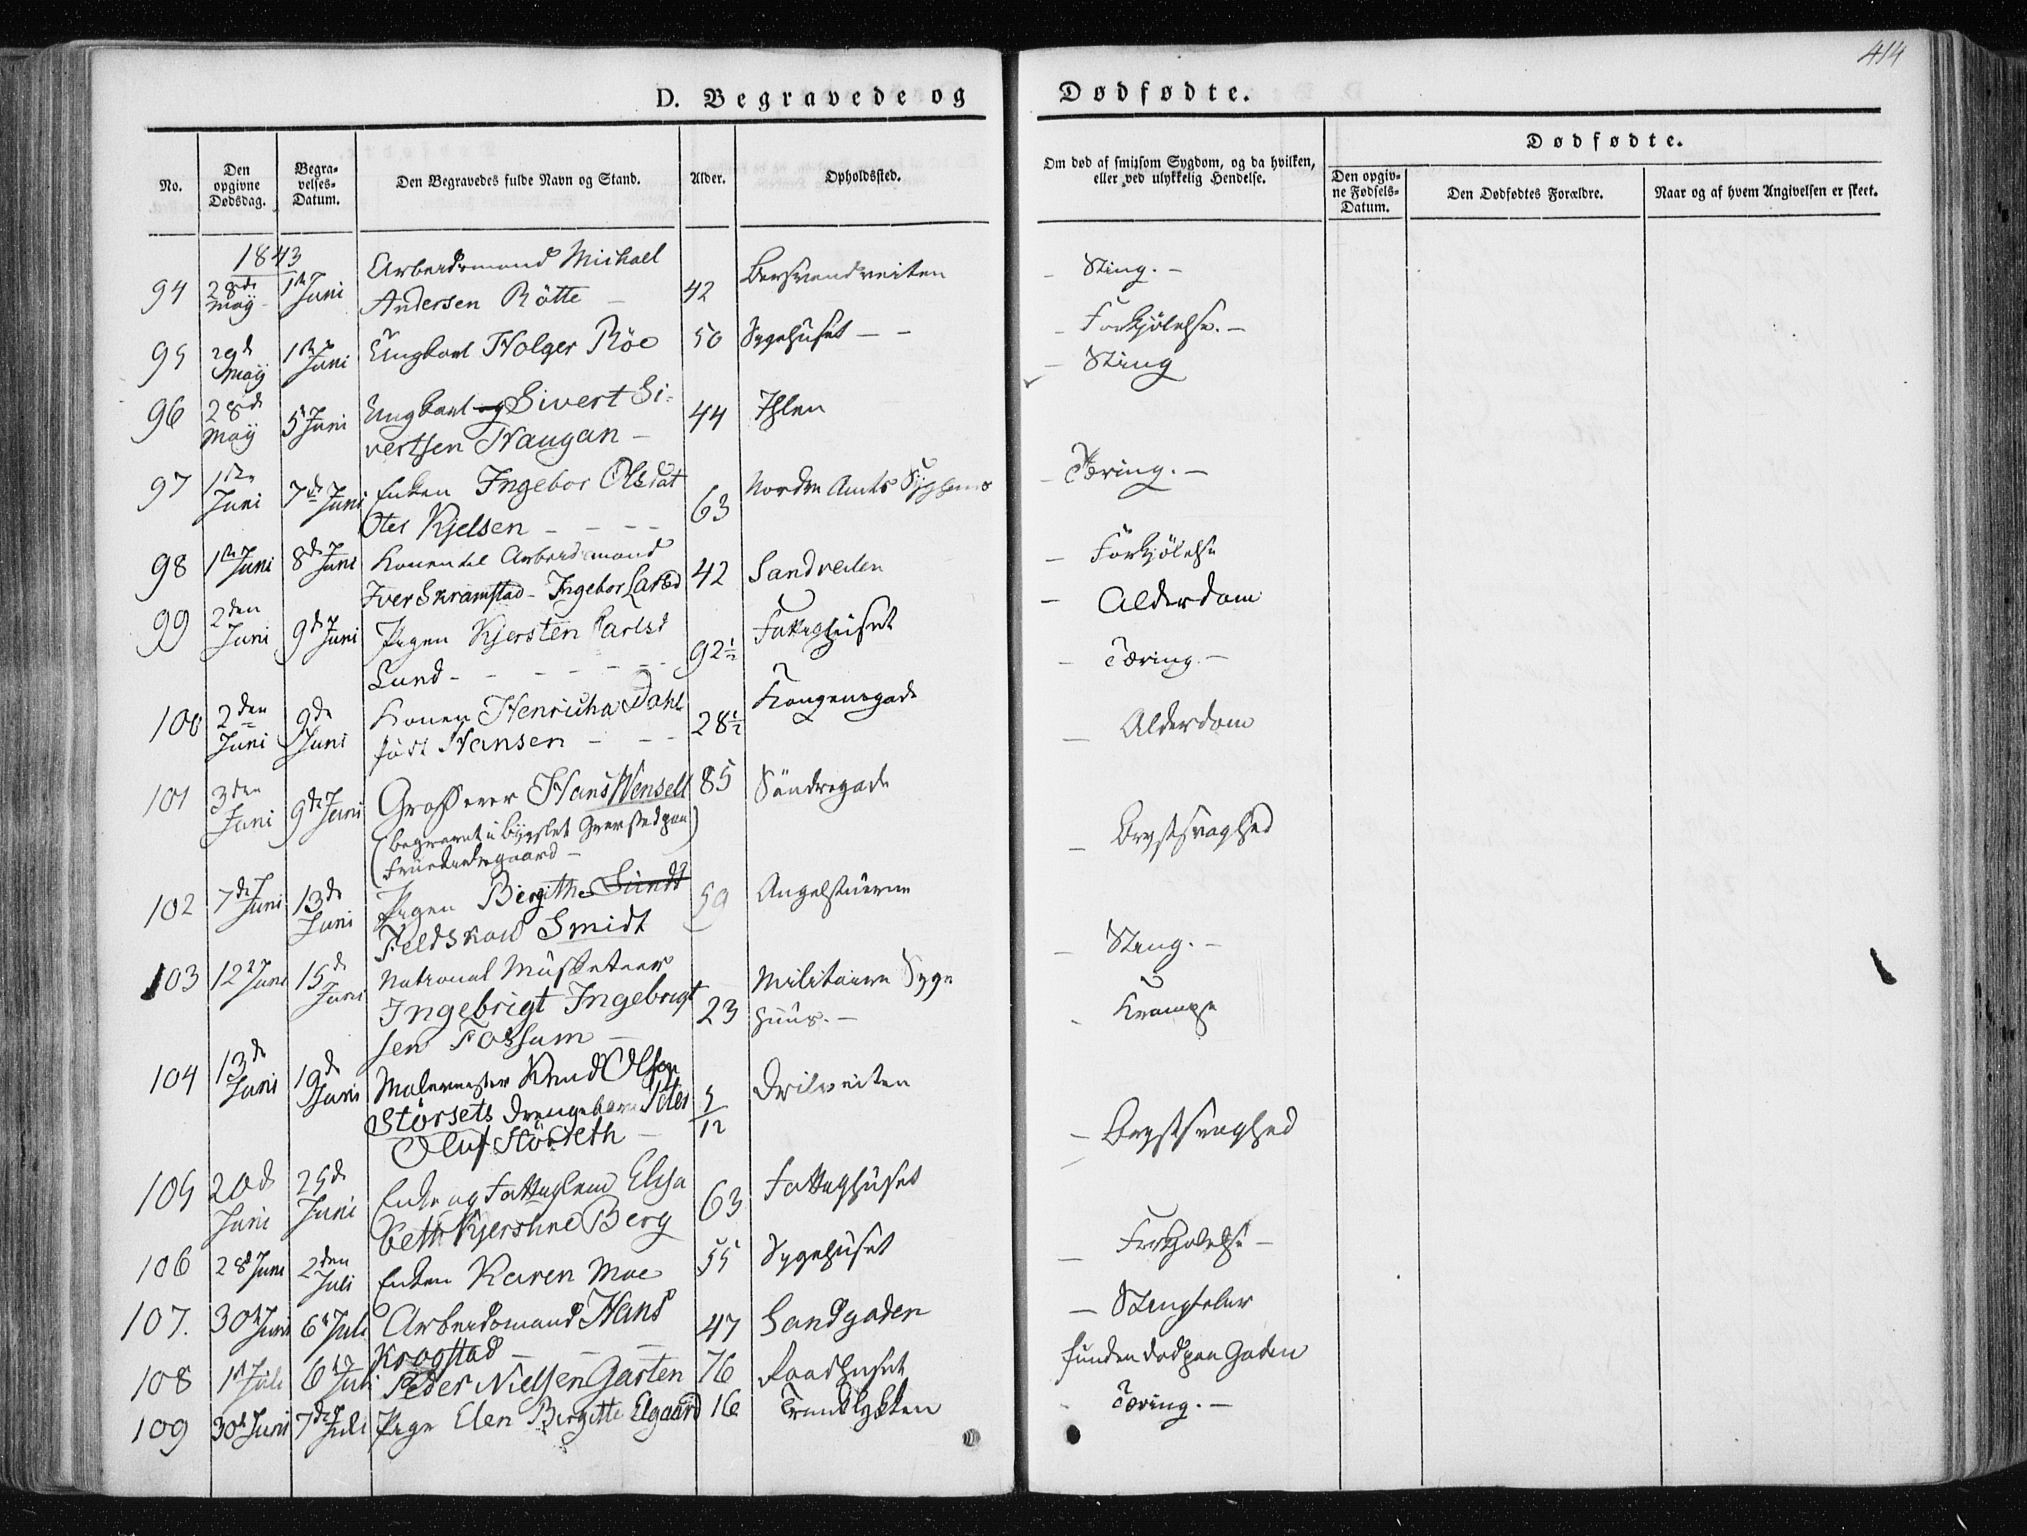 414
D. Begravede og Dødfødte.
No.
Den opgivne Dødsdag.
Begravelses-Datum.
Den Begravedes fulde Navn og Stand.
Alder.
Opholdssted.
Om død af smitsom Sygdom, og da hvilken, eller ved ulykkelig Hendelse.
Dødfødte.
Den opgivne Fødsels-Datum.
Den Dødfødtes Forældre.
Naar og af hvem Angivelsen er skeet.
1843
94 28de May 1ste Juni Arbeidsmand Michael
Andersen Rötte 42 Bersvendveiten Sting.
95 29d May 1ste Juni Ungkarl Holger Röe 50 Sygehuset Forkjölelse.
96 28d May 5 Juni Ungkarl Sivert Si-
vertsen Haugan 44 Ihlen Sting
97 1ste Juni 7de Juni Enken Ingebor Olsdat
Kjelsen 63 Nordre Amts Tæring.
98 1ste Juni 8de Juni Konen til Arbeidsmand
Iver Skramstad Ingebor Larsd 42 Sandveiten Forkjölelse
99 2den Juni 9de Juni Pigen Kjersten Larsd
Lund 92½ Fattighuset Alderdom
100 2den Juni 9de Juni Konen Henricha Dahl
födt Hansen 28½ Kongensgade Tæring
101 3den Juni 9de Juni Grosserer Hans Wensell 85 Söndregade Alderdom
(begravet i Bygslet Gravsted paa
Fruekirkegaard)
102 7de Juni 13de Juni Pigen Birgithe Sundt
Feldskow Smidt 59 Angelstuerne Brystsvaghed
103 12t Juni 15d Juni National Musketeer
Ingebrigt Ingebrigt
sen Fossum 23 Militaire Syge
huus. Sting.
104 13de Juni 19de Juni Malermester Knud Olsen
Störsets Drengebarn Peter
Oluf Störseth 5/12 Drilveiten Krampe
105 20d Juni 25de Juni Enke og Fattiglem Elisa
beth Kjerstine Berg 63 Fattighuset Brystsvaghed
106 28d Juni 2den Juli Enken Karen Moe 55 Sygehuset Forkjölelse
107. 30te Juni 6te Juli Arbeidsmand Hans
Krogstad 47 Sandgaden Stingfeber
108 1ste Juli 6te Juli Peder Nielsen Garten 76 Raadhuset funden död paa Gaden
109 30te Juni 7de Juli Pige Elen Birgitte Elgaard 16 Tæring.